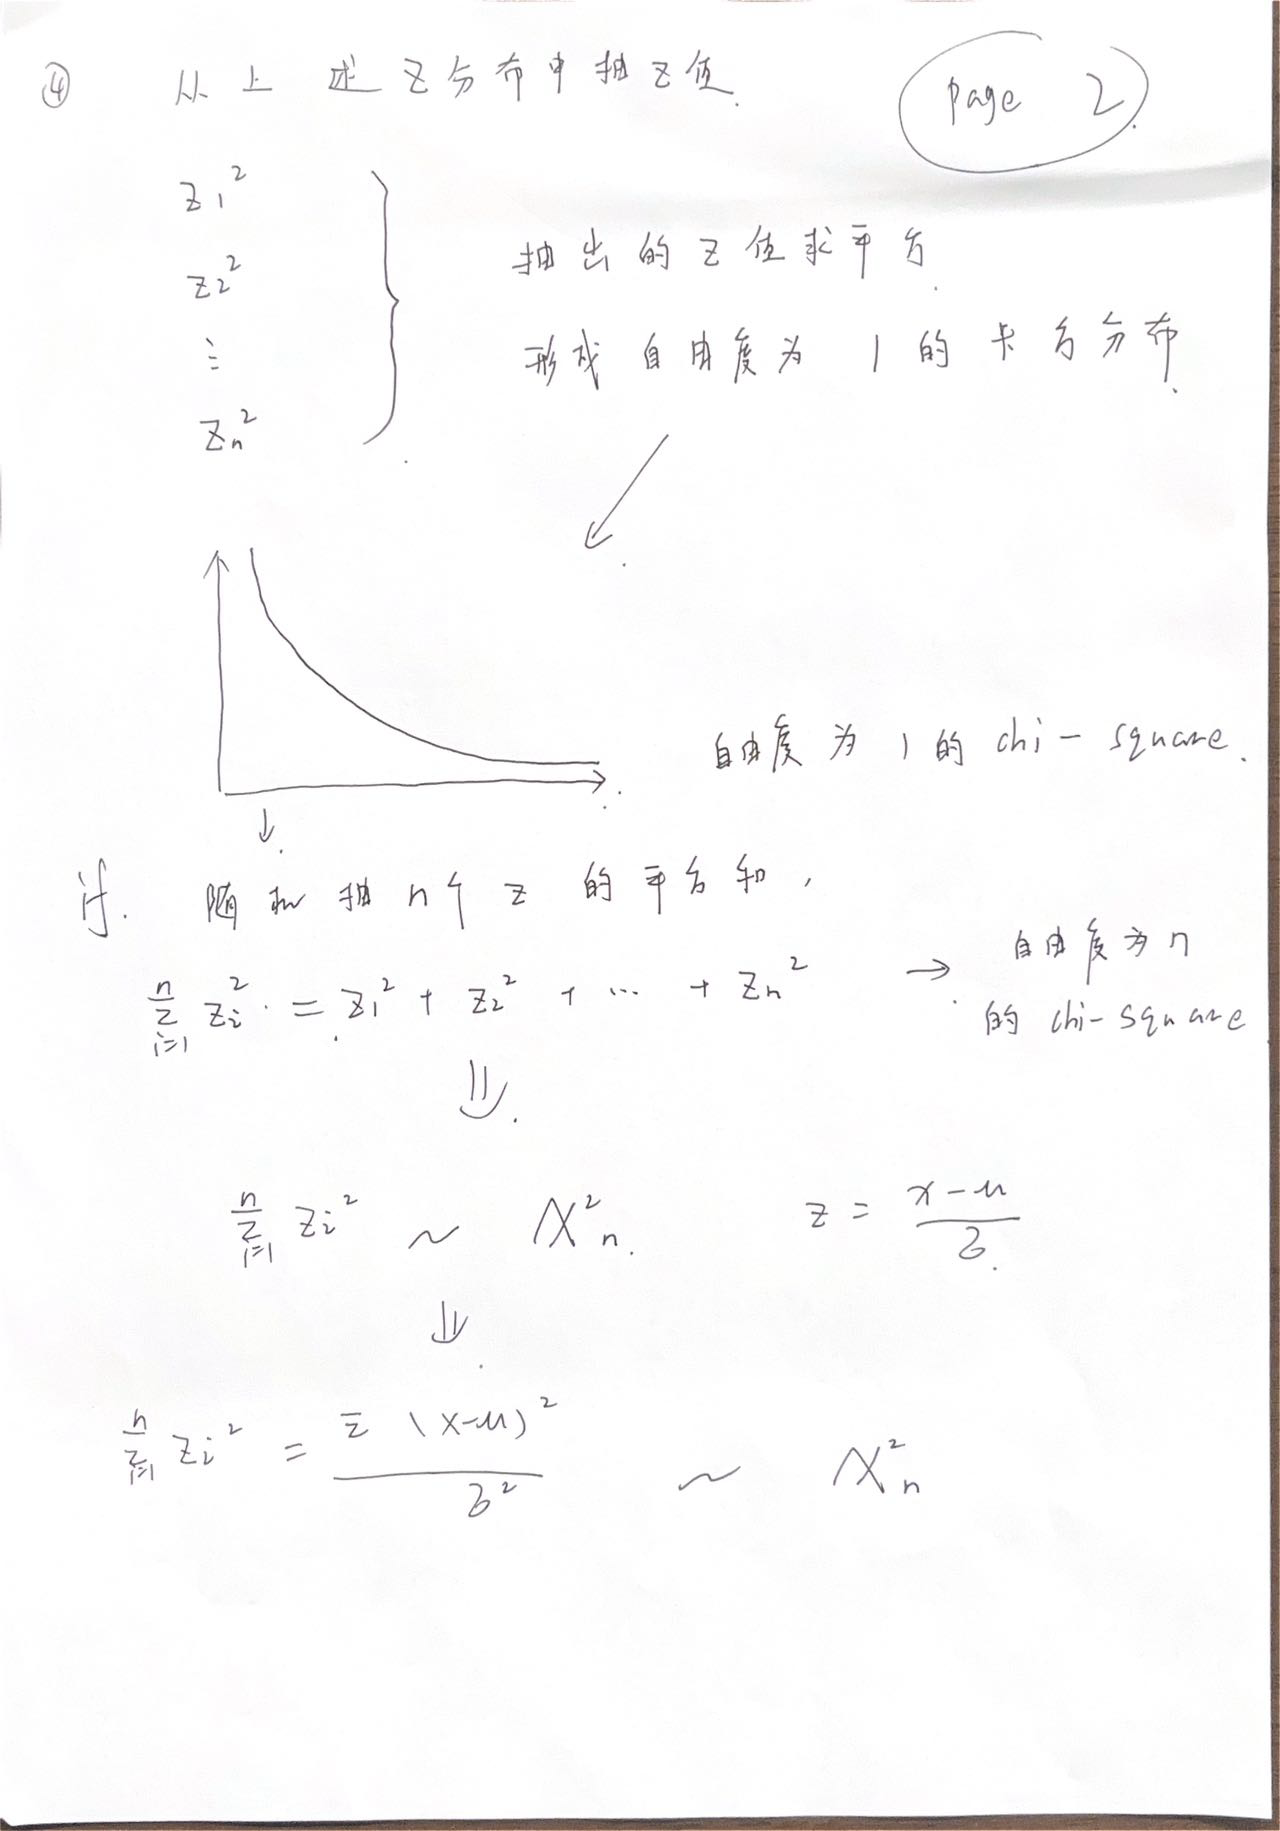 ④ 从上述Z分布中抽Z值.
page 2.
Z₁²
Z₂²
⋮
Zₙ²
抽出的Z值求平方.
形成自由度为1的卡方分布.
自由度为1的 chi-square.
if. 随机抽n个Z的平方和,
∑ᵢ₌₁ⁿ Zᵢ² = Z₁² + Z₂² + ... + Zₙ² →
自由度为n
的 chi-square
⇓.
∑ᵢ₌₁ⁿ Zᵢ² ~ χ²ₙ.
Z = (x-μ)/σ.
⇓.
∑ᵢ₌₁ⁿ Zᵢ² = ∑(x-μ)²/σ² ~ χ²ₙ